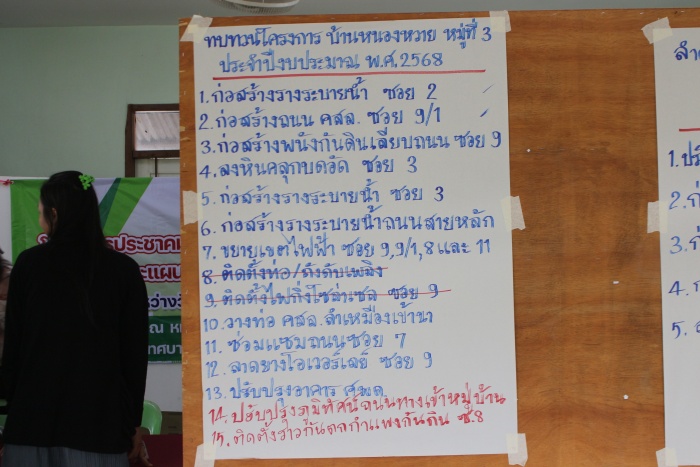 ทบทวนโครงการ บ้านหนองหวาย หมู่ที่ 3
ประจำปีงบประมาณ พ.ศ.2568
1.ก่อสร้างรางระบายน้ำ ซอย 2
2.ก่อสร้างถนน คสล. ซอย 9/1
3.ก่อสร้างพนังกันดินเลียบถนน ซอย 9
4.ลงหินคลุกบดอัด ซอย 3
5.ก่อสร้างรางระบายน้ำ ซอย 3
6.ก่อสร้างรางระบายน้ำถนนสายหลัก
7.ขยายเขตไฟฟ้า ซอย 9,9/1,8 และ 11
8.ติดตั้งท่อ/ถังดับเพลิง
9.ติดตั้งไฟกิ่งโซล่าเซล ซอย 9
10.วางท่อ คสล.ลำเหมืองเข้านา
11.ซ่อมแซมถนนซอย 7
12.ลาดยางโอเวอร์เลย์ ซอย 9
13.ปรับปรุงอาคาร ศพด.
14.ปรับปรุงภูมิทัศน์ถนนทางเข้าหมู่บ้าน
15.ติดตั้งราวกันตกกำแพงกันดิน ซ.8
1.
2.
3.
4.
5.